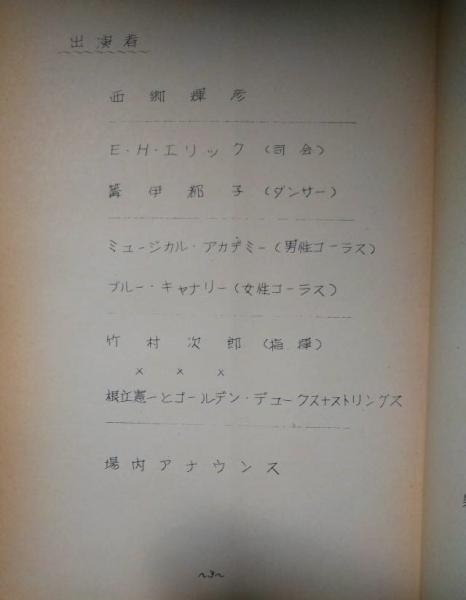 出演者
西郷輝彦
E・H・エリック(司会)
篝伊都子(ダンサー)
ミュージカル・アカデミー(男性コーラス)
ブルー・キャナリー(女性コーラス)
竹村次郎(指揮)
× × ×
根立憲一とゴールデン・デュークス+ストリングス
場内アナウンス
~3~